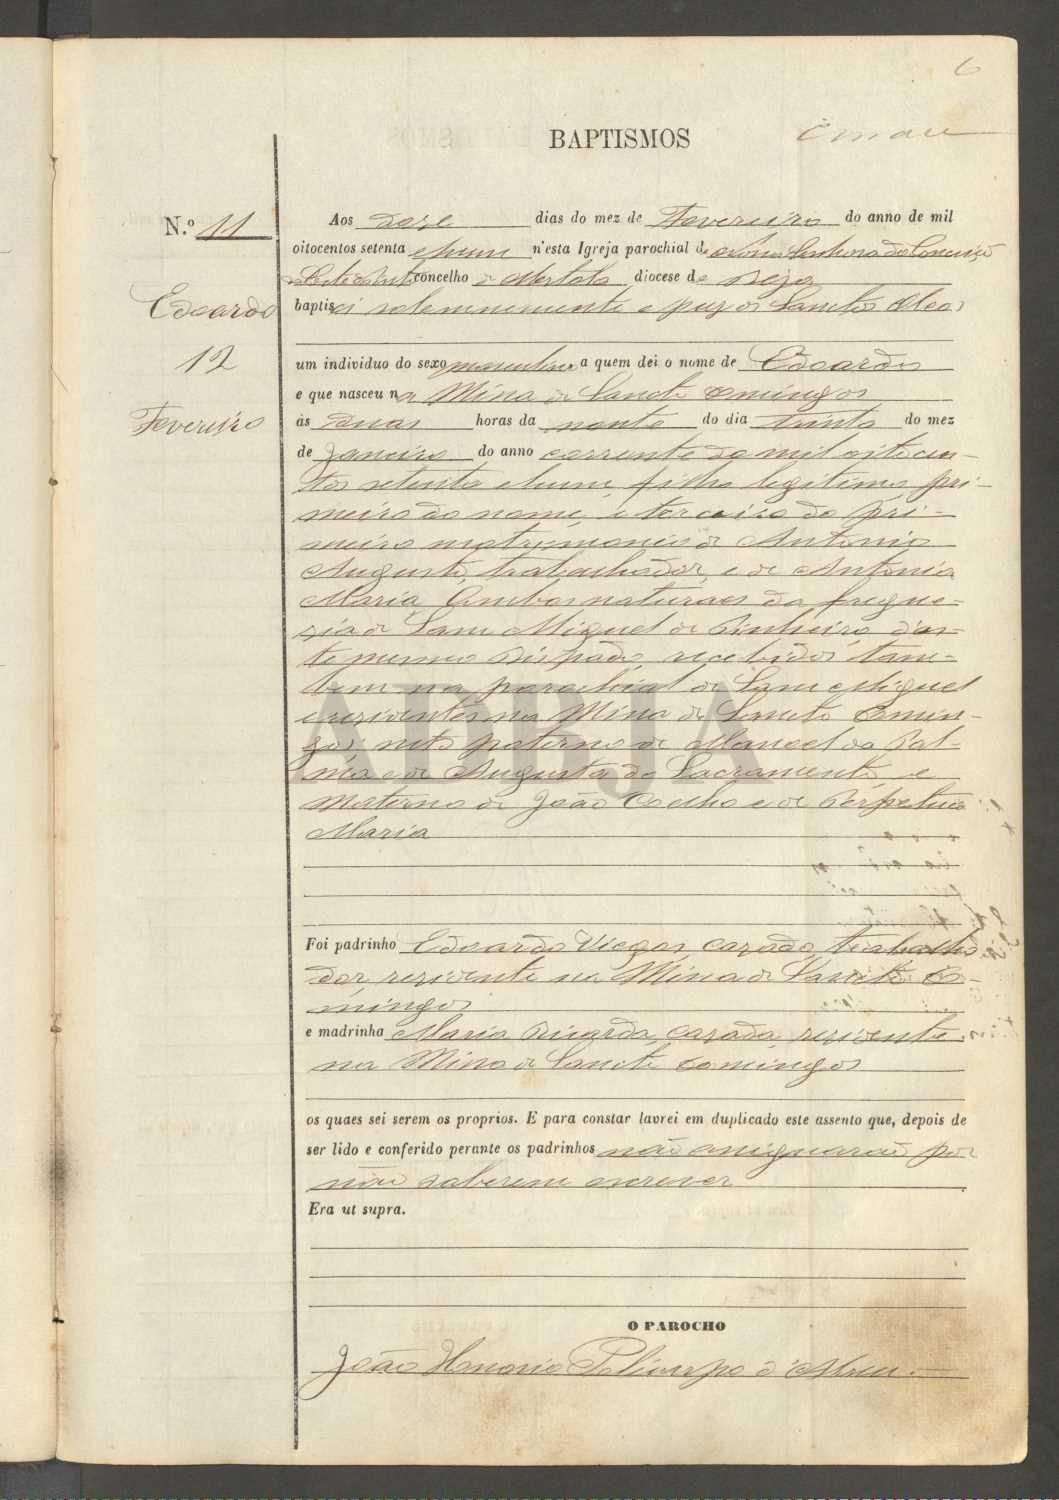 6
BAPTISMOS
N.º 11
Aos doze dias do mez de Fevereiro do anno de mil
oitocentos setenta e hum n'esta Igreja parochial de Nossa Senhora da Conceição
concelho de Mertola diocese de Beja
Edoardo
baptisei solemnemente e puz os Sanctos Oleos
12
um individuo do sexo masculino a quem dei o nome de Edoardo
e que nasceu na Mina de Sancto Domingos
Fevereiro
ás duas horas da noute do dia trinta do mez
de Janeiro do anno corrente de mil oitocen-
tos setenta e hum, filho legitimo pri-
meiro do nome, e terceiro do pri-
meiro matrimonio de Antonio
Augusto, trabalhador, e de Antonia
Maria, ambos naturaes da fregue-
sia de Sam Miguel do Pinheiro, d'es-
te mesmo Bispado, recebidos tam-
bem na parochial de Sam Miguel
e rezidentes na Mina de Sancto Domin-
gos: neto paterno de Manoel da Pal-
ma e de Augusta do Sacramento e
Materno de João Coelho e de Perpetua
Maria
Foi padrinho Edoardo Viegas, cazado, trabalha-
dor, rezidente na Mina de Sancto Do-
mingos
e madrinha Maria Ricarda, cazada, rezidente
na Mina de Sancto Domingos
os quaes sei serem os proprios. E para constar lavrei em duplicado este assento que, depois de
ser lido e conferido perante os padrinhos não assignarão por
não saberem escrever
Era ut supra.
O PAROCHO
João Honorio Policarpo d'Abreu.
ADBJA